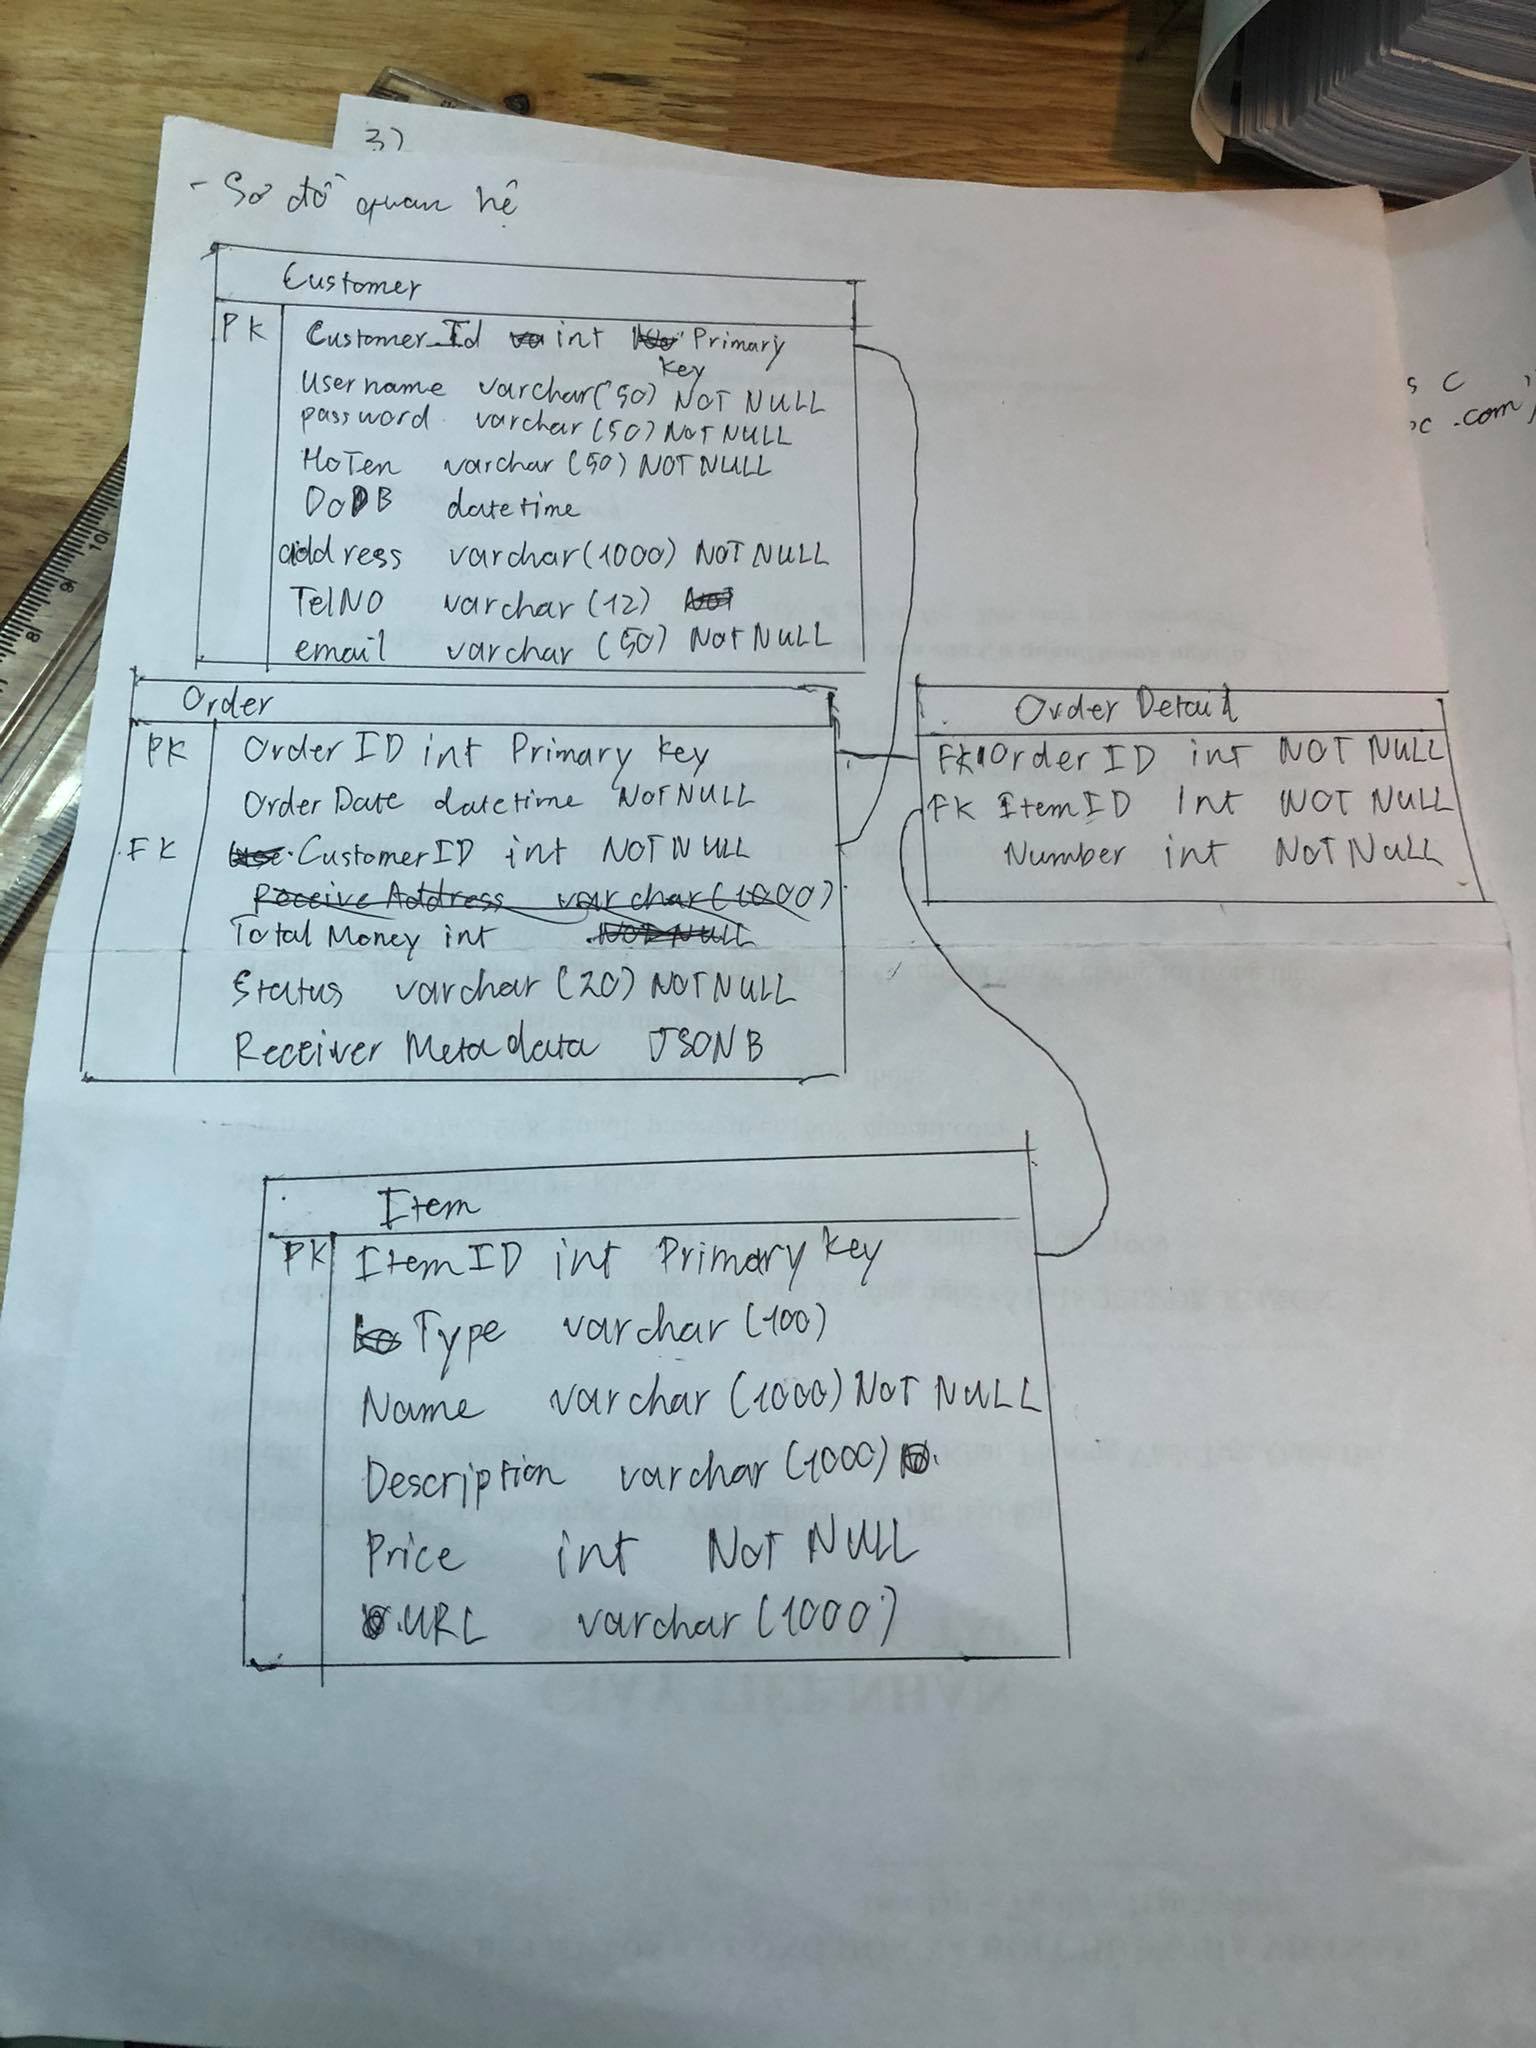 3)
- Sơ đồ quan hệ
Customer
PK Customer_Id int Primary key
Username varchar(50) NOT NULL
password varchar(50) NOT NULL
HoTen varchar (50) NOT NULL
DoB datetime
address varchar(1000) NOT NULL
TelNO varchar (12) Not
email varchar (50) Not NULL
Order
PK Order ID int Primary key
Order Date datetime NOT NULL
FK Customer ID int NOT NULL
Receive Address varchar(1000)
Total Money int NOT NULL
Status varchar (20) NOT NULL
Receiver Metadata JSONB
Order Detail
FK Order ID int NOT NULL
FK ItemID Int NOT NULL
Number int NOT NULL
Item
PK ItemID int Primary key
Type varchar (100)
Name varchar (1000) NOT NULL
Description varchar (1000)
Price int NOT NULL
URL varchar (1000)
s C
.com